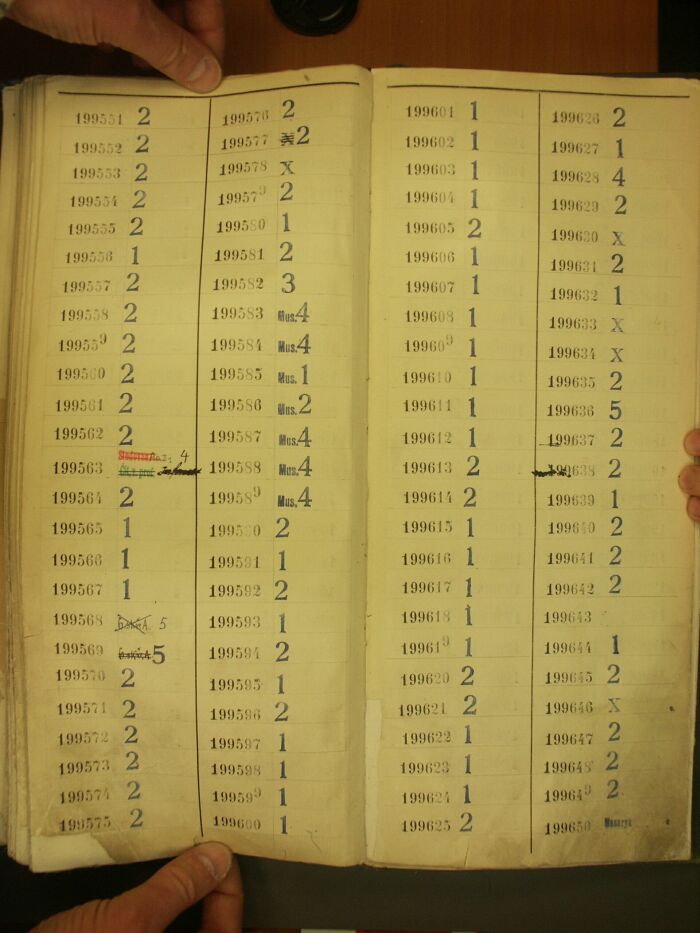 199551 2
199552 2
199553 2
199554 2
199555 2
199556 1
199557 2
199558 2
199559 2
199560 2
199561 2
199562 2
199563 4
199564 2
199565 1
199566 1
199567 1
199568 5
199569 5
199570 2
199571 2
199572 2
199573 2
199574 2
199575 2
199576 2
199577 2
199578 X
199579 2
199580 1
199581 2
199582 3
199583 Mus. 4
199584 Mus. 4
199585 Mus. 1
199586 Mus. 2
199587 Mus. 4
199588 Mus. 4
199589 Mus. 4
199590 2
199591 1
199592 2
199593 1
199594 2
199595 1
199596 2
199597 1
199598 1
199599 1
199600 1
199601 1
199602 1
199603 1
199604 1
199605 2
199606 1
199607 1
199608 1
199609 1
199610 1
199611 1
199612 1
199613 2
199614 2
199615 1
199616 1
199617 1
199618 1
199619 1
199620 2
199621 2
199622 1
199623 1
199624 1
199625 2
199626 2
199627 1
199628 4
199629 2
199630 X
199631 2
199632 1
199633 X
199634 X
199635 2
199636 5
199637 2
199638 2
199639 1
199640 2
199641 2
199642 2
199643
199644 1
199645 2
199646 X
199647 2
199648 2
199649 2
199650